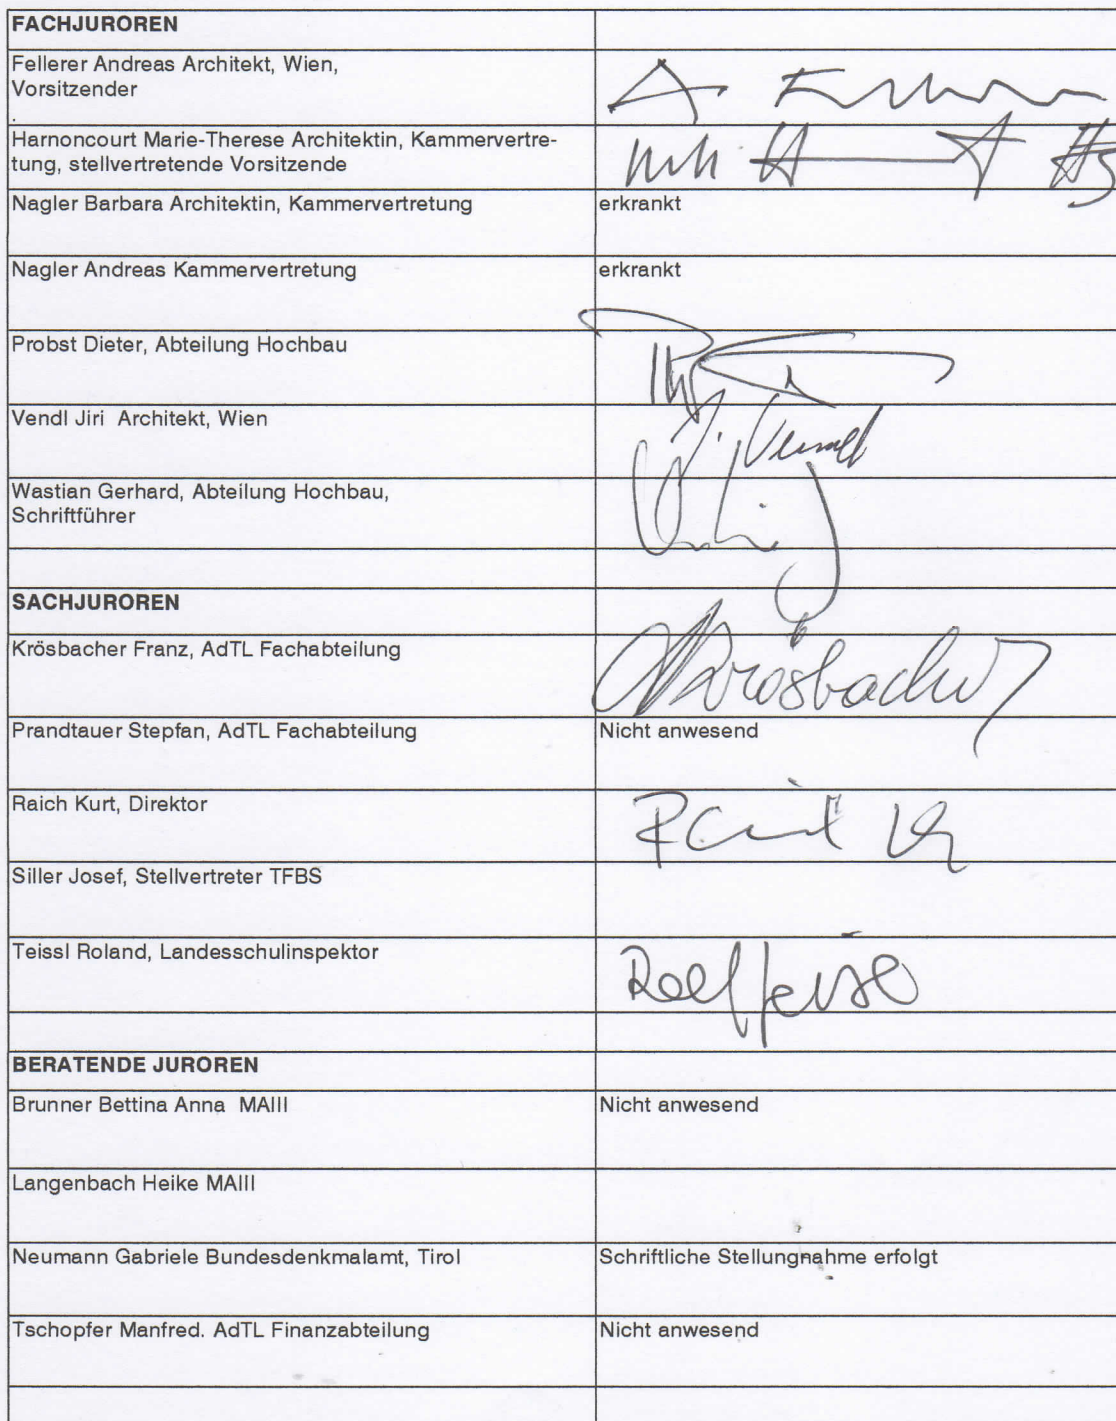 FACHJUROREN
Fellerer Andreas Architekt, Wien,
Vorsitzender
Harnoncourt Marie-Therese Architektin, Kammervertre-
tung, stellvertretende Vorsitzende
Nagler Barbara Architektin, Kammervertretung erkrankt
Nagler Andreas Kammervertretung erkrankt
Probst Dieter, Abteilung Hochbau
Vendl Jiri Architekt, Wien
Wastian Gerhard, Abteilung Hochbau,
Schriftführer
SACHJUROREN
Krösbacher Franz, AdTL Fachabteilung Krösbacher
Prandtauer Stepfan, AdTL Fachabteilung Nicht anwesend
Raich Kurt, Direktor
Siller Josef, Stellvertreter TFBS
Teissl Roland, Landesschulinspektor
BERATENDE JUROREN
Brunner Bettina Anna MAIII Nicht anwesend
Langenbach Heike MAIII
Neumann Gabriele Bundesdenkmalamt, Tirol Schriftliche Stellungnahme erfolgt
Tschopfer Manfred. AdTL Finanzabteilung Nicht anwesend